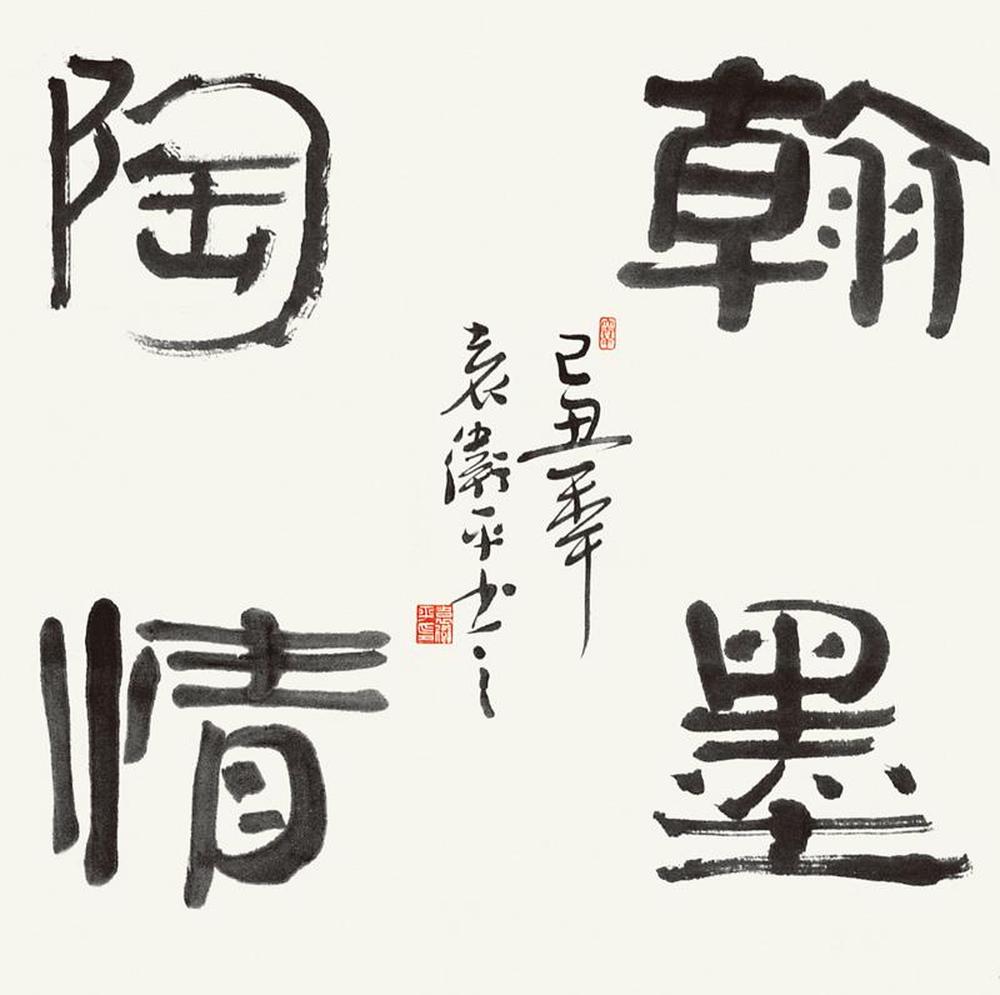 翰墨
陶情
己丑年
袁衛平书之